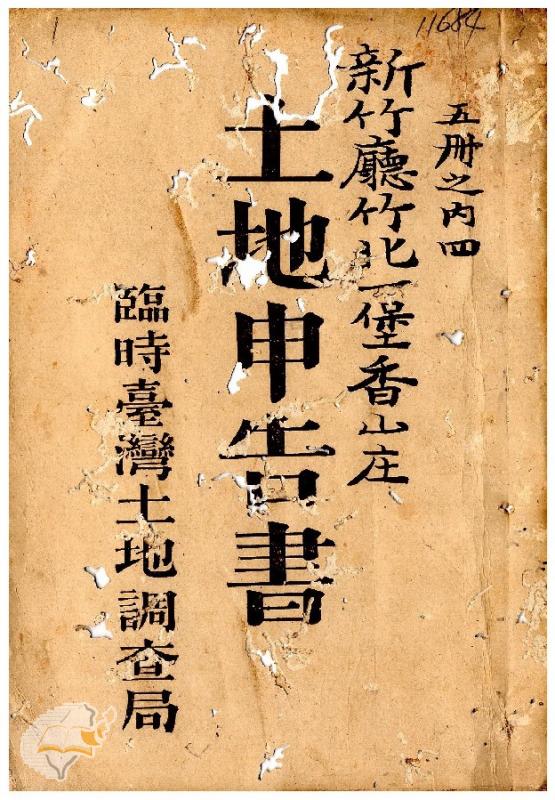 11684
五冊之內四
新竹廳竹北一堡香山庄
土地申告書
臨時臺灣土地調查局